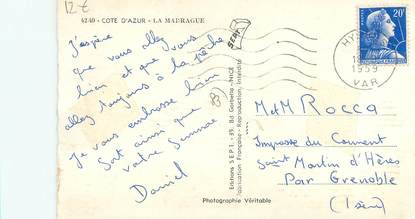 12 €
4240 - COTE D'AZUR - LA MADRAGUE
J'espère
que vous allez
bien et que vous
allez toujours à la pêche
Je vous embrasse bien
fort ainsi que
votre femme
Daniel
83
SEPI
Editions S E P I. - 39, Bd Gorbella - NICE
Fabrication Française - Reproduction Interdite
Photographie Véritable
20F
HY
1959
VAR
M et M Rocca
Impasse du Couvent
Saint Martin d'Hères
Par Grenoble
(Isère)